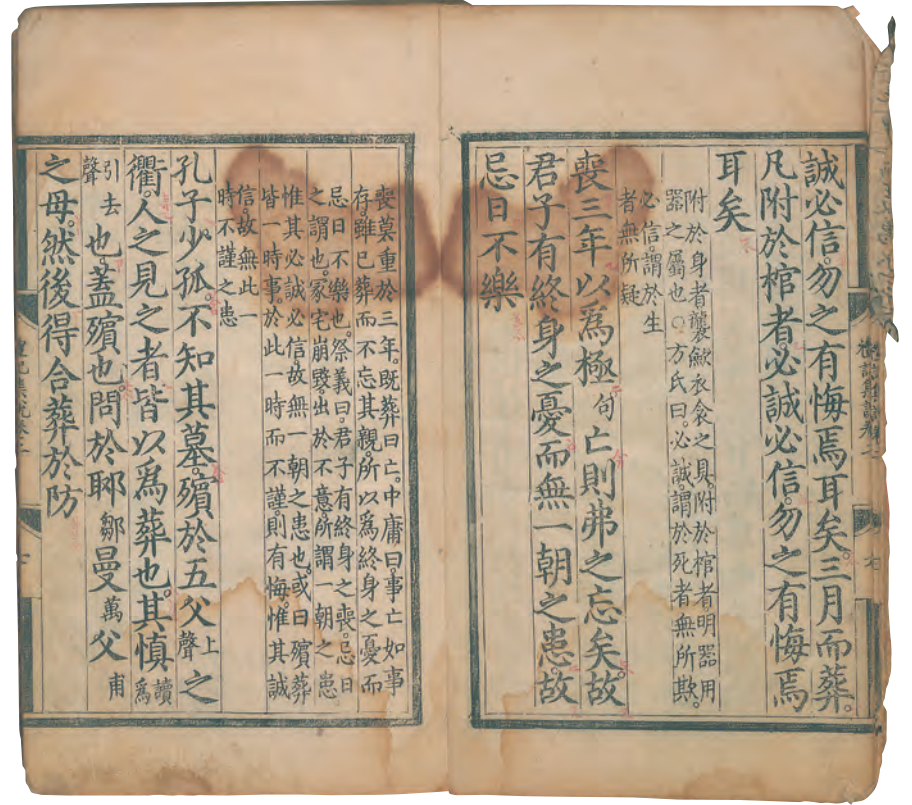 誠必信。勿之有悔焉耳矣。三月而葬。
凡附於棺者。必誠必信。勿之有悔焉
耳矣
附於身者。襲斂衣衾之具。附於棺者。明器用
器之屬也。○方氏曰。必誠。謂於死者無所欺。
必信。謂於生
者無所疑
喪三年以爲極句亡則弗之忘矣。故
君子有終身之憂而無一朝之患。故
忌日不樂
喪莫重於三年。既葬曰亡。中庸曰事亡如事
存。雖已葬而不忘其親。所以爲終身之憂而
忌日不樂也。祭義曰。君子有終身之喪。忌日
之謂也。冢宅崩毀。出於不意。所謂一朝之患
惟其必誠必信。故無一朝之患也。或曰殯葬
皆一時事。於此一時而不謹。則有悔。惟其誠
信。故無此一
時不謹之患
孔子少孤。不知其墓。殯於五父上聲之
衢。人之見之者皆以爲葬也。其慎讀爲
引去聲也。蓋殯也。問於郰鄒曼萬父甫
之母。然後得合葬於防
禮記集說卷之二